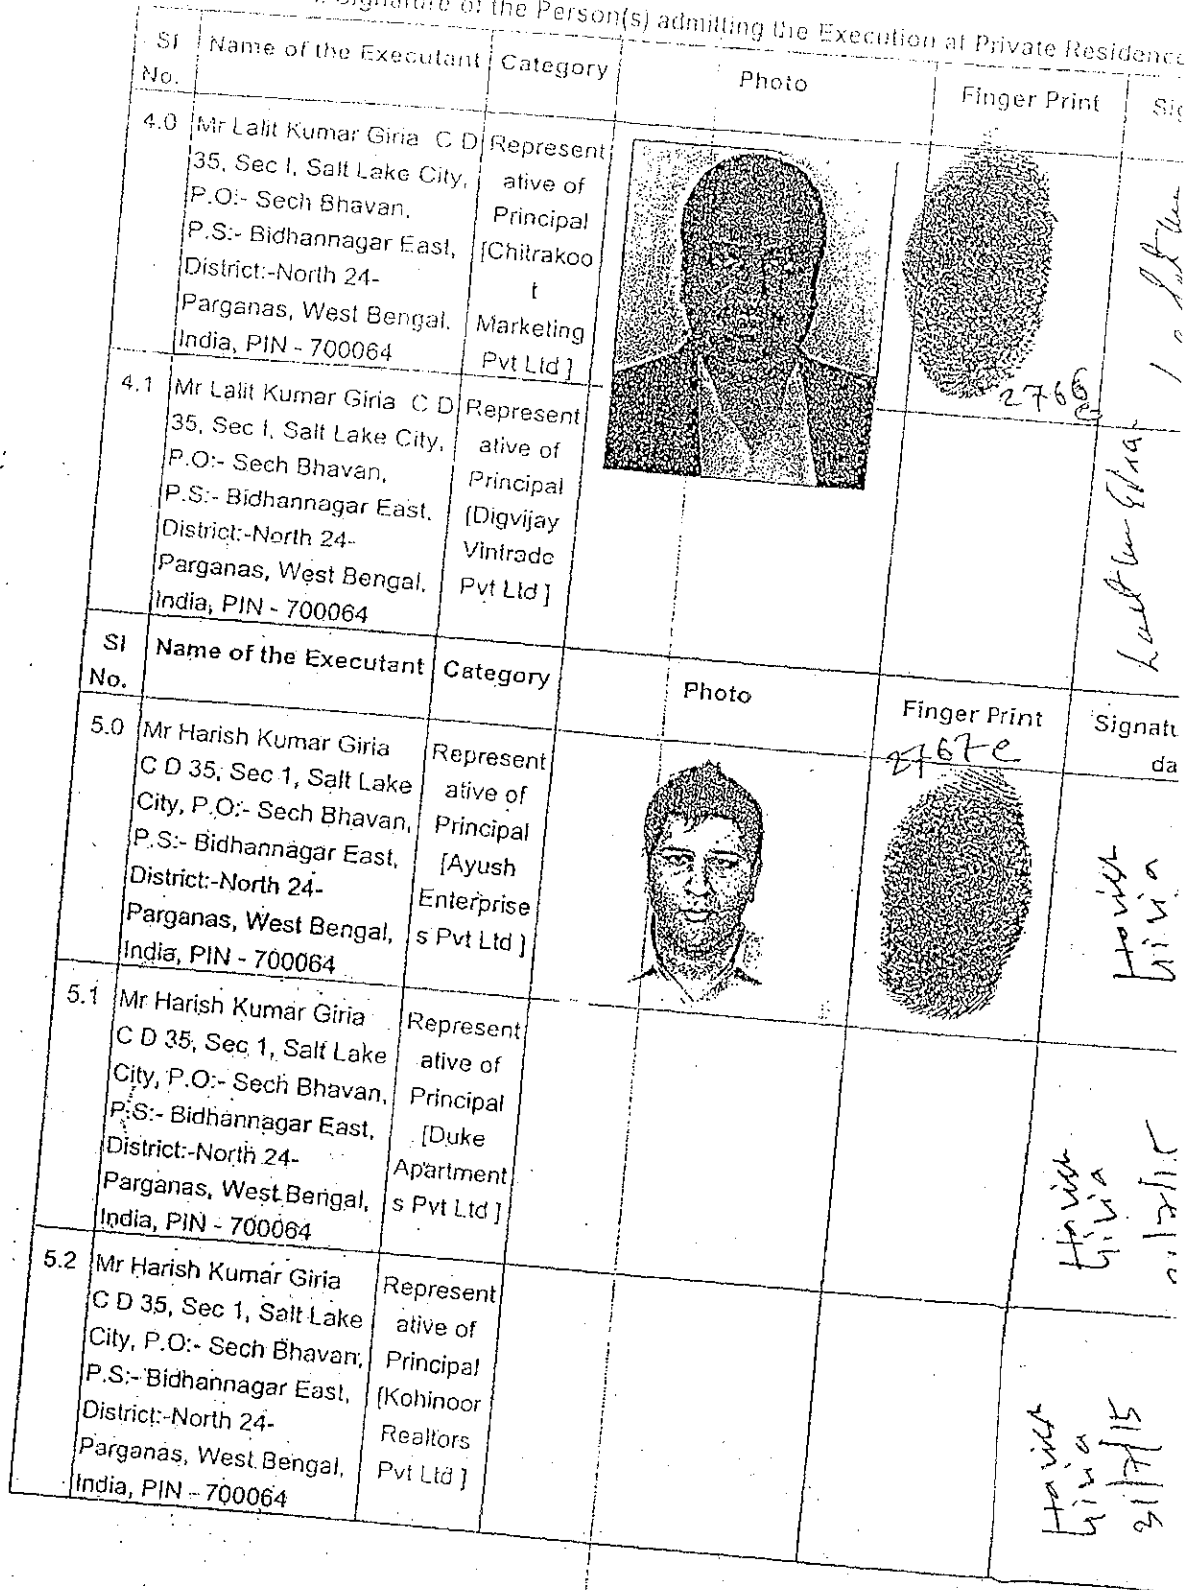 Signature of the Person(s) admitting the Execution at Private Residence
Sl No. Name of the Executant Category Photo Finger Print
4.0 Mr Lalit Kumar Giria C D
35, Sec I, Salt Lake City,
P.O:- Sech Bhavan,
P.S:- Bidhannagar East,
District:-North 24-
Parganas, West Bengal,
India, PIN - 700064
Represent
ative of
Principal
[Chitrakoo
t
Marketing
Pvt Ltd ]
2766
4.1 Mr Lalit Kumar Giria C D
35, Sec I, Salt Lake City,
P.O:- Sech Bhavan,
P.S:- Bidhannagar East,
District:-North 24-
Parganas, West Bengal,
India, PIN - 700064
Represent
ative of
Principal
[Digvijay
Vintrade
Pvt Ltd ]
Sl No. Name of the Executant Category Photo Finger Print
5.0 Mr Harish Kumar Giria
C D 35, Sec 1, Salt Lake
City, P.O:- Sech Bhavan,
P.S:- Bidhannagar East,
District:-North 24-
Parganas, West Bengal,
India, PIN - 700064
Represent
ative of
Principal
[Ayush
Enterprise
s Pvt Ltd ]
2767-e
Harish
Giria
5.1 Mr Harish Kumar Giria
C D 35, Sec 1, Salt Lake
City, P.O:- Sech Bhavan,
P.S:- Bidhannagar East,
District:-North 24-
Parganas, West Bengal,
India, PIN - 700064
Represent
ative of
Principal
[Duke
Apartment
s Pvt Ltd ]
Harish
Giria
5.2 Mr Harish Kumar Giria
C D 35, Sec 1, Salt Lake
City, P.O:- Sech Bhavan,
P.S:- Bidhannagar East,
District:-North 24-
Parganas, West Bengal,
India, PIN - 700064
Represent
ative of
Principal
[Kohinoor
Realtors
Pvt Ltd ]
Harish
Giria
31/7/15